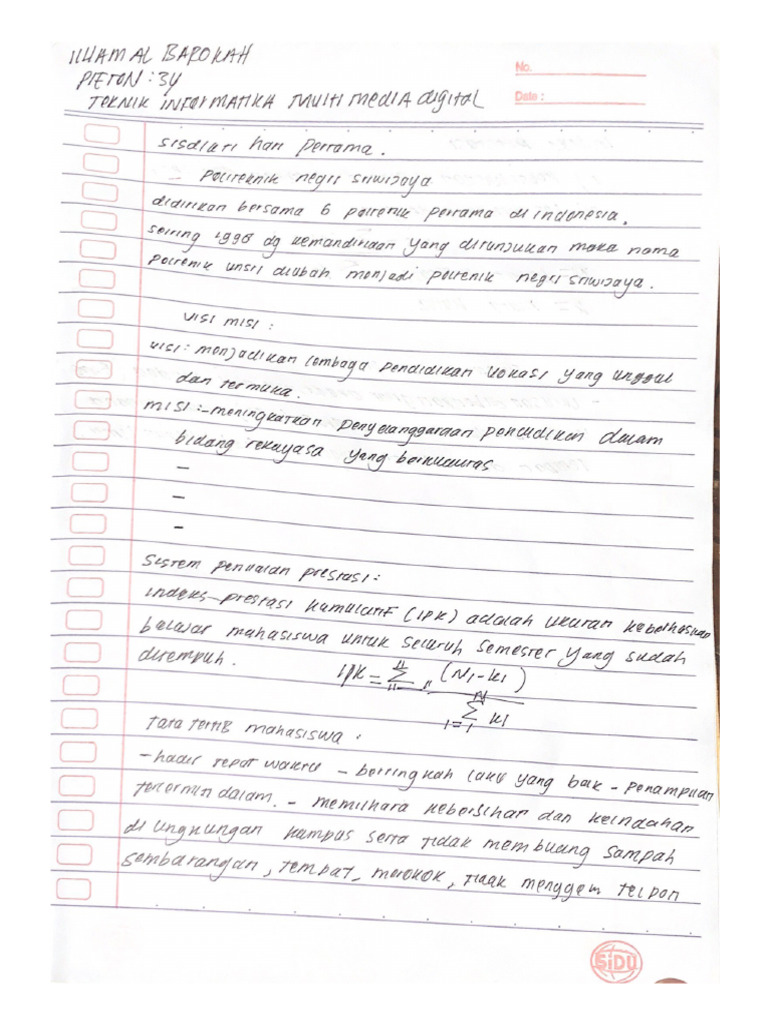 ILHAM AL BAROKAH
PLETON : 34
TEKNIK INFORMATIKA MULTI MEDIA digital
No.
Date :
sisdikti hari pertama.
= Politeknik negri sriwijaya
didirikan bersama 6 poltenik pertama di indonesia.
seiring 1998 dg kemandiriaan yang ditunjukan maka nama
poltenik unsri diubah menjadi poltenik negri sriwijaya.
VISI MISI :
visi : menjadikan lembaga pendidikan vokasi yang unggul
dan termuka.
MISI : - meningkatkan penyelanggaraan pendidikan dalam
bidang rekayasa yang berkualitas
-
-
-
Sistem penilaian prestasi :
indeks prestasi kumulatif (IPK) adalah ukuran keberhasilan
belajar mahasiswa untuk seluruh semester yang sudah
ditempuh.
IPK = Σ (Ni - ki)
Σ ki
i = 1
Tata tertib mahasiswa :
- hadir tepat waktu - bertingkah laku yang baik - Penampilan
tercermin dalam. - memilhara kebersihan dan keindahan
di lingkungan kampus serta tidak membuang sampah
sembarangan, tempat, merokok, tidak menggem telpon
SIDU